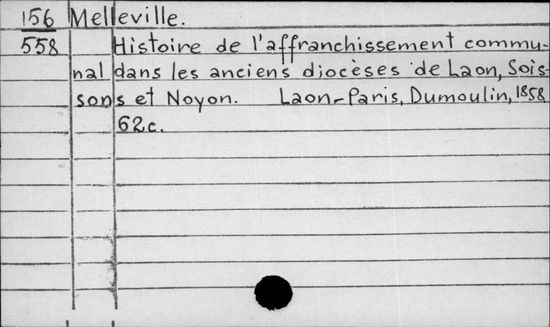 156 Melleville.
558 Histoire de l'affranchissement commu-
nal dans les anciens diocèses de Laon, Sois-
sons et Noyon. Laon-Paris, Dumoulin, 1858
62c.